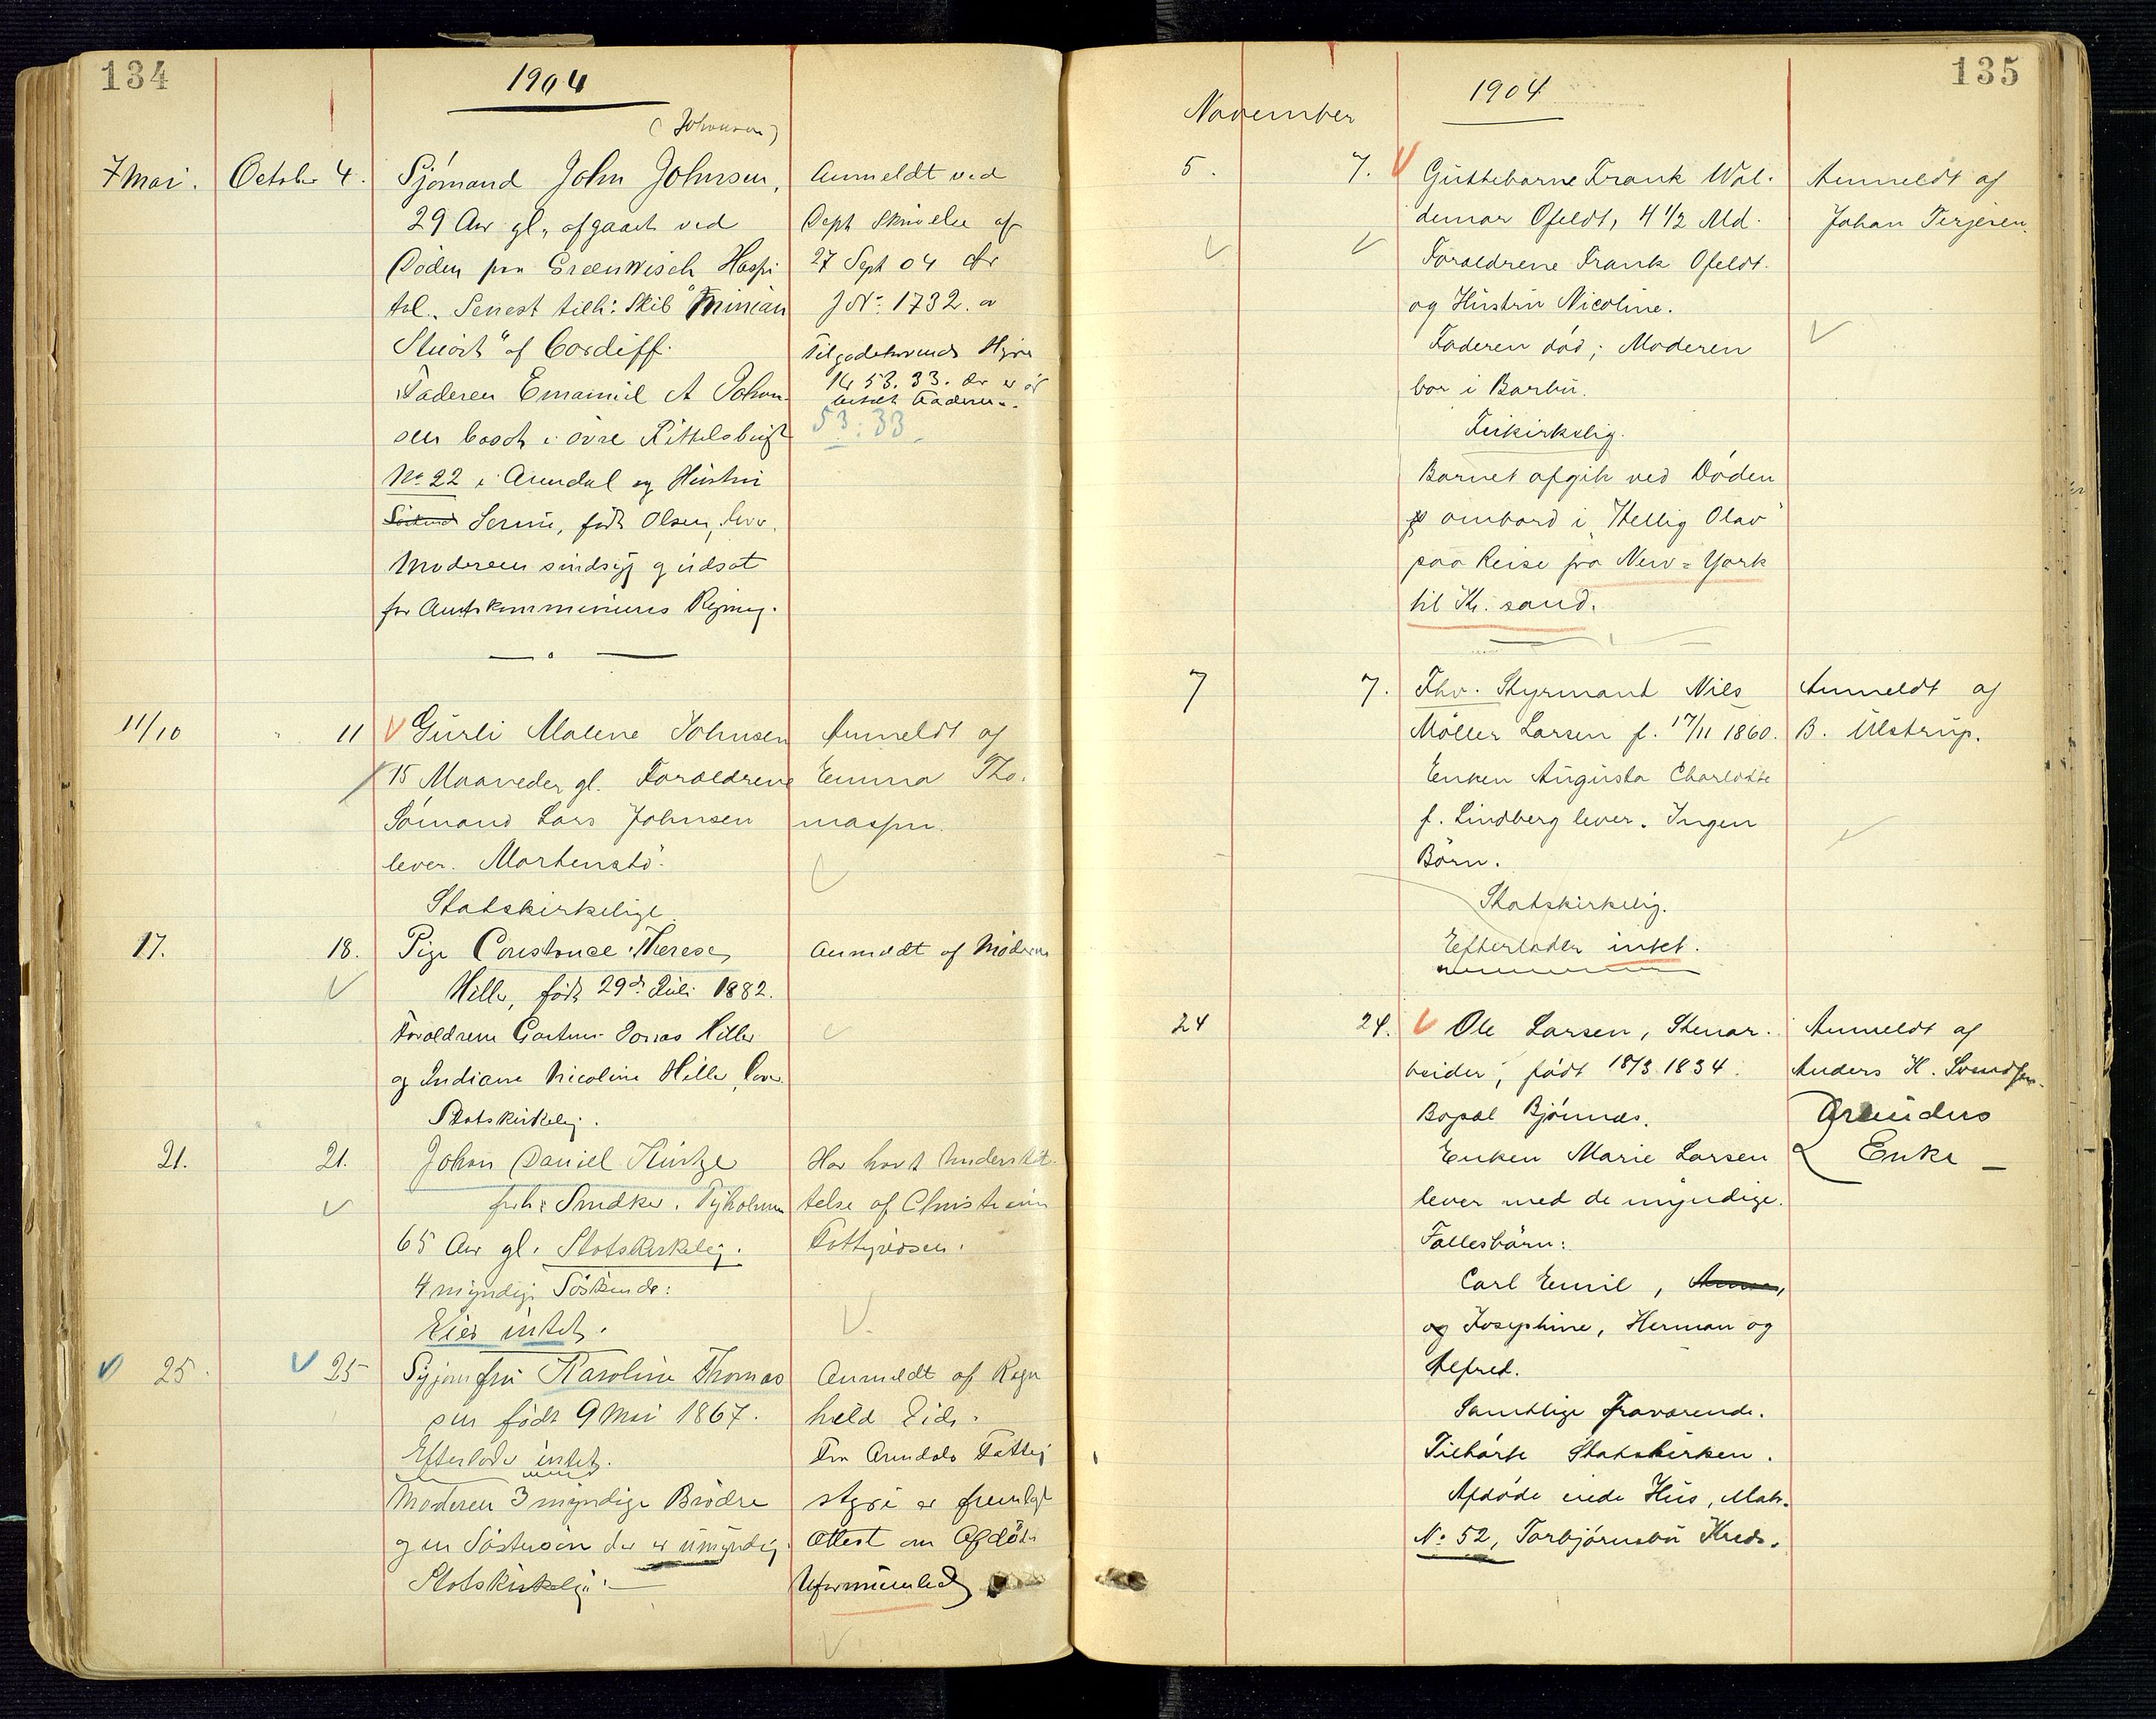 134
1904
(Johnsen)
7 Mai.
October 4.
Sjömand John Johnsen,
29 Aar gl., afgaaet ved
Döden paa Greenwisch Hospi
tal. Senest tilh: Skib "Minian
Stuart" af Cardiff.
Faderen Emanuel A Johan-
sen boech i övre Tittelsbugt
No 22 i Arendal og Hustru
Serine, födt Olsen, lever.
Moderen sindsyg og indsat
for Amtskommunens Regning.
Anmeldt ved
Dept Skrivelse af
27 Sept 04 cfr
J No: 1732. a
Tilgodehavende Hyre
Kr 53.33. der er
betalt Faderen.
53:33
11/10
" 11
Gurli Malene Johnsen
15 Maaneder gl. Foraeldrene
Sömand Lars Johnsen
lever. Mortenstö.
Statskirkelige.
Anmeldt af
Emma Tho-
massen.
17.
18.
Pige Constance Therese
Hille, födt 29de Juli 1882.
Foraeldrene Gartner Jonas Hille
og Indiane Nicoline Hille, lever
Statskirkelig.
Anmeldt af Moderen
21.
21.
Johan Daniel Kuntze
forh: Snedker. Tyholmen
65 Aar gl. Statskirkelig.
4 myndige Söskende:
Eier intet.
Har havt Understöt-
telse af Christiania
Fattigväsen.
25.
25
Syjomfru Karoline Thomas
sen födt 9 Mai 1867.
Efterlader intet.
Moderen 3 myndige Brödre
og en Söstersön der er umyndig.
Statskirkelig.
Anmeldt af Ragn
hild Eide.
Fra Arendals Fattig
styre er fremlagt
Attest om Afdödes
Uformuenhed
135
1904
November
5.
7.
Guttebarne Frank Wal-
demar Ofeldt, 4 1/2 Md.
Foraeldrene Frank Ofeldt
og Hustru Nicoline.
Faderen död; Moderen
bor i Barbu.
Frikirkelig.
Barnet afgik ved Döden
ombord i "Hellig Olav"
paa Reise fra New-York
til Kr. sand.
Anmeldt af
Johan Terjesen.
7
7.
Fhv. Styrmand Nils
Möller Larsen f. 17/11 1860.
Enken Augusta Charlotte
f. Lindberg lever. Ingen
Börn.
Statskirkelig.
Efterlader intet.
Anmeldt af
B. Ulstrup.
24
24.
Ole Larsen, Stenar-
beider, födt 18/3 1834.
Bopael Bjönnes.
Enken Marie Larsen
lever med de myndige.
Faellesbörn:
Carl Emil, Anna,
og Josephine, Herman og
Alfred.
Samtlige fravaerende.
Tilhörte Statskirken.
Afdöde eiede Hus, Matr.
No 52, Torbjörnsbu Kreds.
Anmeldt af
Anders H. Svendsen.
Enke —